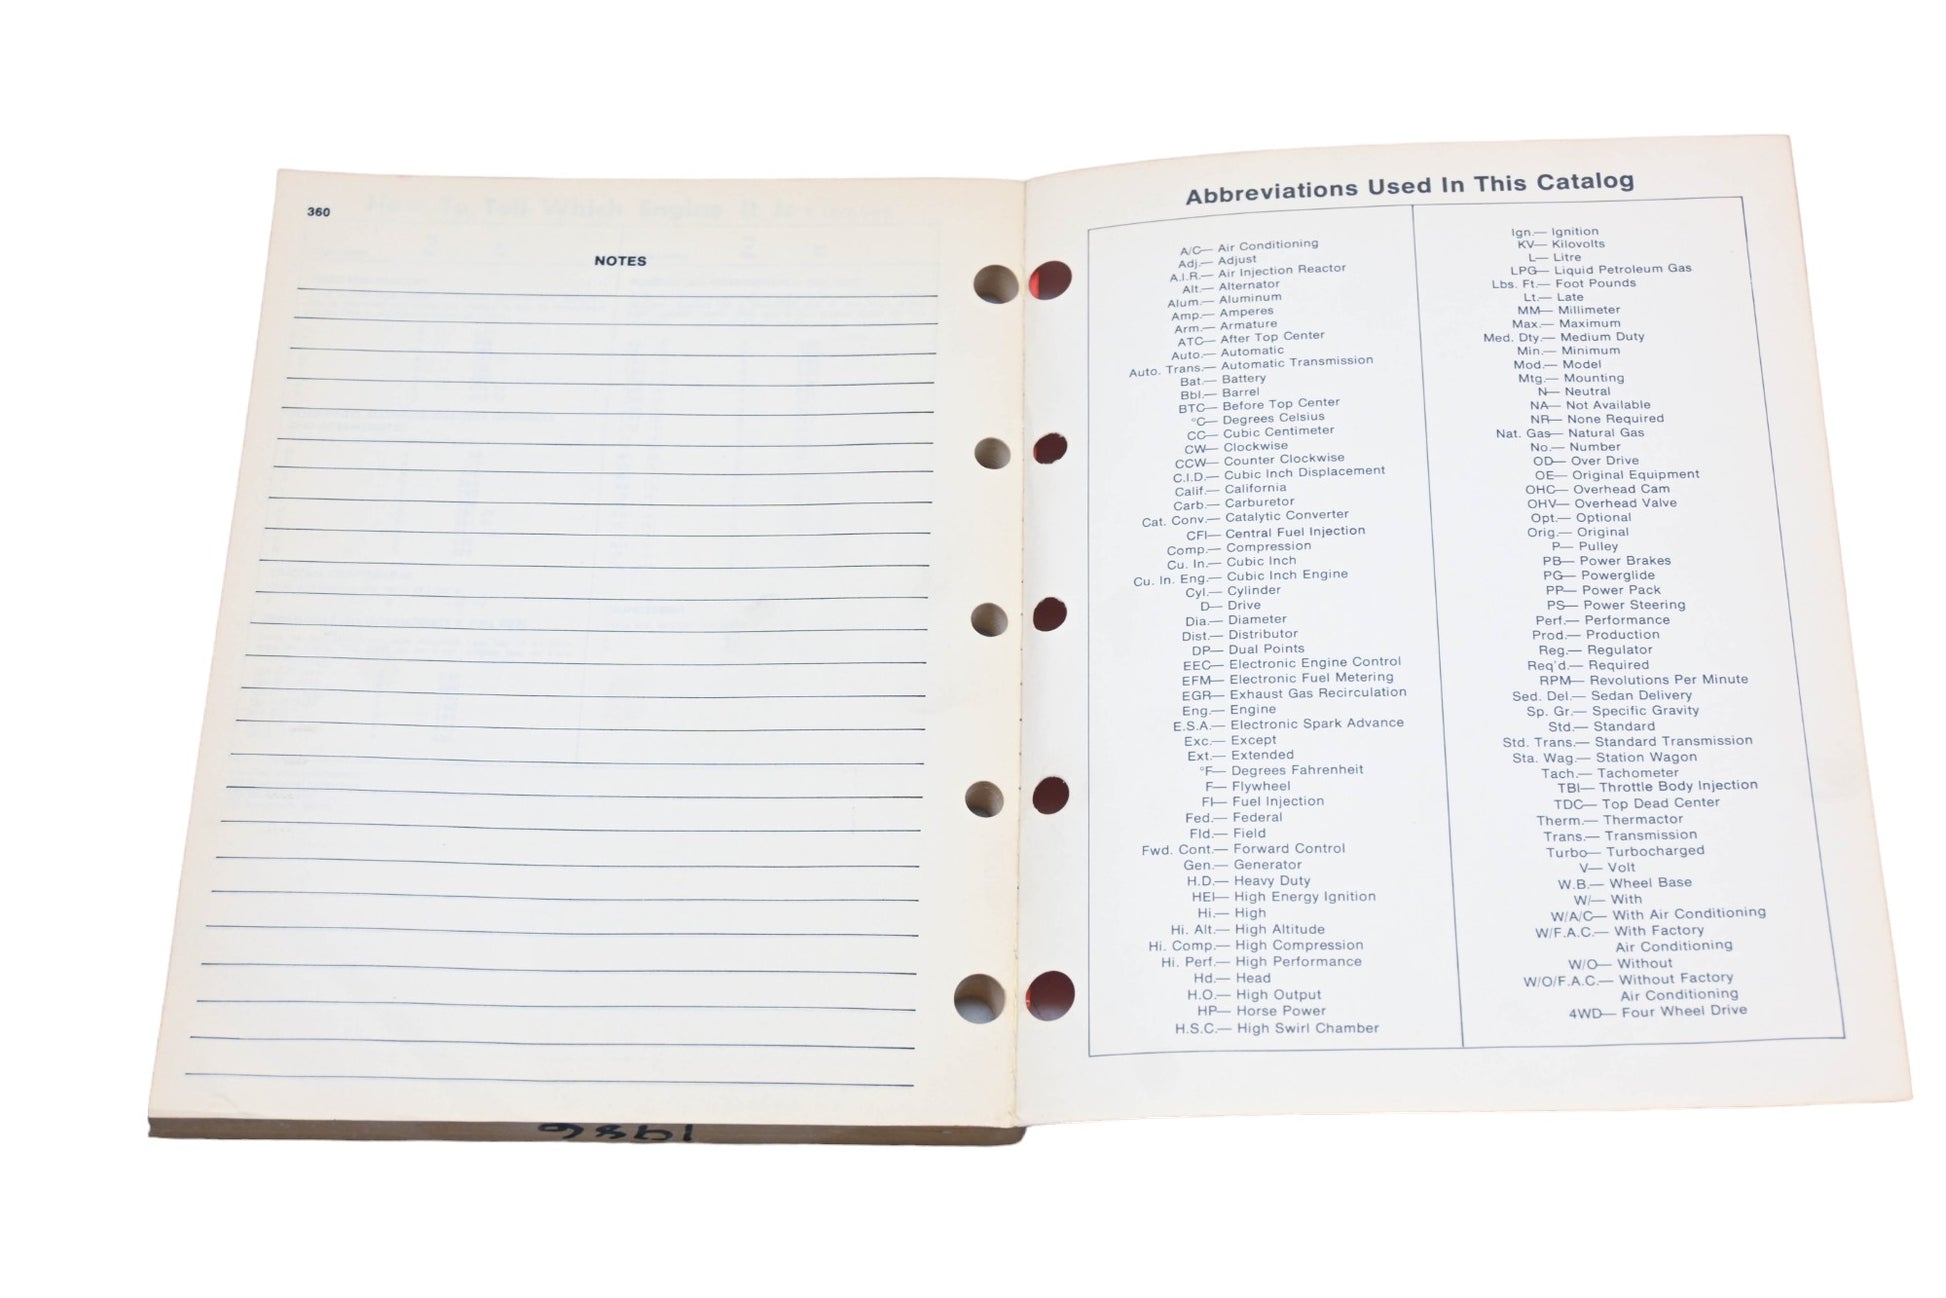 360
NOTES
1986
Abbreviations Used In This Catalog
A/C— Air Conditioning
Adj.— Adjust
A.I.R.— Air Injection Reactor
Alt.— Alternator
Alum.— Aluminum
Amp.— Amperes
Arm.— Armature
ATC— After Top Center
Auto.— Automatic
Auto. Trans.— Automatic Transmission
Bat.— Battery
Bbl.— Barrel
BTC— Before Top Center
°C— Degrees Celsius
CC— Cubic Centimeter
CW— Clockwise
CCW— Counter Clockwise
C.I.D.— Cubic Inch Displacement
Calif.— California
Carb.— Carburetor
Cat. Conv.— Catalytic Converter
CFI— Central Fuel Injection
Comp.— Compression
Cu. In.— Cubic Inch
Cu. In. Eng.— Cubic Inch Engine
Cyl.— Cylinder
D— Drive
Dia.— Diameter
Dist.— Distributor
DP— Dual Points
EEC— Electronic Engine Control
EFM— Electronic Fuel Metering
EGR— Exhaust Gas Recirculation
Eng.— Engine
E.S.A.— Electronic Spark Advance
Exc.— Except
Ext.— Extended
°F— Degrees Fahrenheit
F— Flywheel
FI— Fuel Injection
Fed.— Federal
Fld.— Field
Fwd. Cont.— Forward Control
Gen.— Generator
H.D.— Heavy Duty
HEI— High Energy Ignition
Hi.— High
Hi. Alt.— High Altitude
Hi. Comp.— High Compression
Hi. Perf.— High Performance
Hd.— Head
H.O.— High Output
HP— Horse Power
H.S.C.— High Swirl Chamber
Ign.— Ignition
KV— Kilovolts
L— Litre
LPG— Liquid Petroleum Gas
Lbs. Ft.— Foot Pounds
Lt.— Late
MM— Millimeter
Max.— Maximum
Med. Dty.— Medium Duty
Min.— Minimum
Mod.— Model
Mtg.— Mounting
N— Neutral
NA— Not Available
NR— None Required
Nat. Gas— Natural Gas
No.— Number
OD— Over Drive
OE— Original Equipment
OHC— Overhead Cam
OHV— Overhead Valve
Opt.— Optional
Orig.— Original
P— Pulley
PB— Power Brakes
PG— Powerglide
PP— Power Pack
PS— Power Steering
Perf.— Performance
Prod.— Production
Reg.— Regulator
Req'd.— Required
RPM— Revolutions Per Minute
Sed. Del.— Sedan Delivery
Sp. Gr.— Specific Gravity
Std.— Standard
Std. Trans.— Standard Transmission
Sta. Wag.— Station Wagon
Tach.— Tachometer
TBI— Throttle Body Injection
TDC— Top Dead Center
Therm.— Thermactor
Trans.— Transmission
Turbo— Turbocharged
V— Volt
W.B.— Wheel Base
W/— With
W/A/C— With Air Conditioning
W/F.A.C.— With Factory
Air Conditioning
W/O— Without
W/O/F.A.C.— Without Factory
Air Conditioning
4WD— Four Wheel Drive